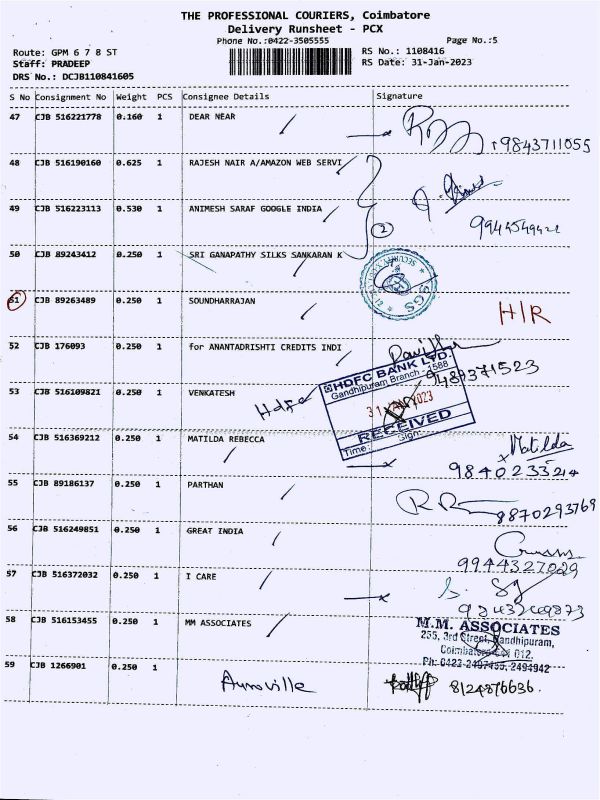 THE PROFESSIONAL COURIERS, Coimbatore
Delivery Runsheet - PCX
Phone No.:0422-3505555 Page No.:5
Route: GPM 6 7 8 ST RS No.: 1108416
Staff: PRADEEP RS Date: 31-Jan-2023
DRS No.: DCJB110841605
S No Consignment No Weight PCS Consignee Details Signature
47 CJB 516221778 0.160 1 DEAR NEAR
9843711055
48 CJB 516190160 0.625 1 RAJESH NAIR A/AMAZON WEB SERVI
49 CJB 516223113 0.530 1 ANIMESH SARAF GOOGLE INDIA
2
50 CJB 89243412 0.250 1 SRI GANAPATHY SILKS SANKARAN K
SGS
51 CJB 89263489 0.250 1 SOUNDHARRAJAN
H/R
52 CJB 176093 0.250 1 for ANANTADRISHTI CREDITS INDI
HDFC BANK LTD.
Gandhipuram Branch - 1588
53 CJB 516109821 0.250 1 VENKATESH
Hdfc
31 JAN 2023
RECEIVED
Time: Sign:
54 CJB 516369212 0.250 1 MATILDA REBECCA
Matilda
55 CJB 89186137 0.250 1 PARTHAN
8870293769
56 CJB 516249851 0.250 1 GREAT INDIA
9944327029
57 CJB 516372032 0.250 1 I CARE
58 CJB 516153455 0.250 1 MM ASSOCIATES
M.M. ASSOCIATES
255, 3rd Street, Gandhipuram,
Coimbatore-641 012.
Ph: 0422-2497455, 2494942
59 CJB 1266901 0.250 1
Auroville 8124876636.